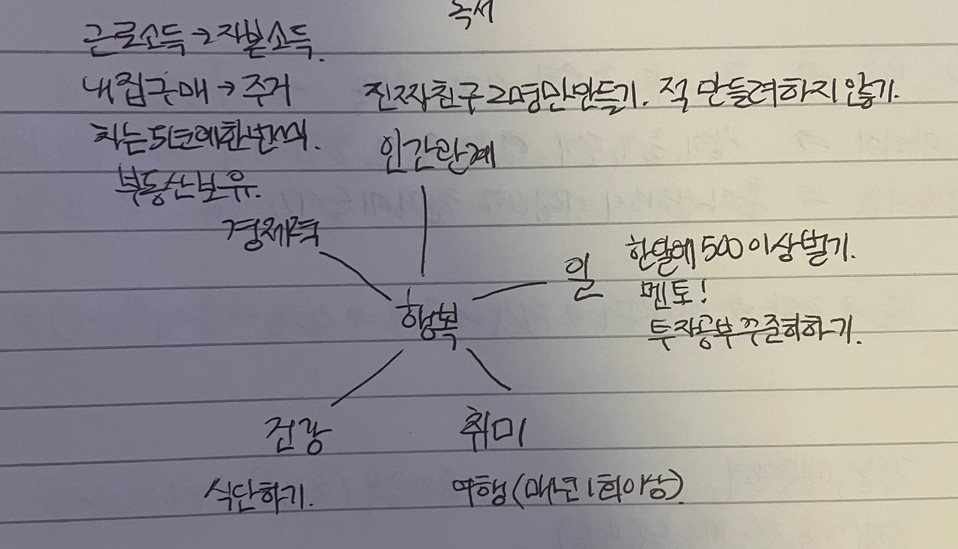 독서
근로소득→자본소득.
내집구매→주거
차는 5년에 한번씩.
부동산보유.
경제력
진짜친구 2명만만들기. 적 만들려하지 않기.
인간관계
일
한달에 500 이상벌기.
멘토!
투자공부꾸준히하기.
행복
건강
식단하기.
취미
여행(매년 1회이상)